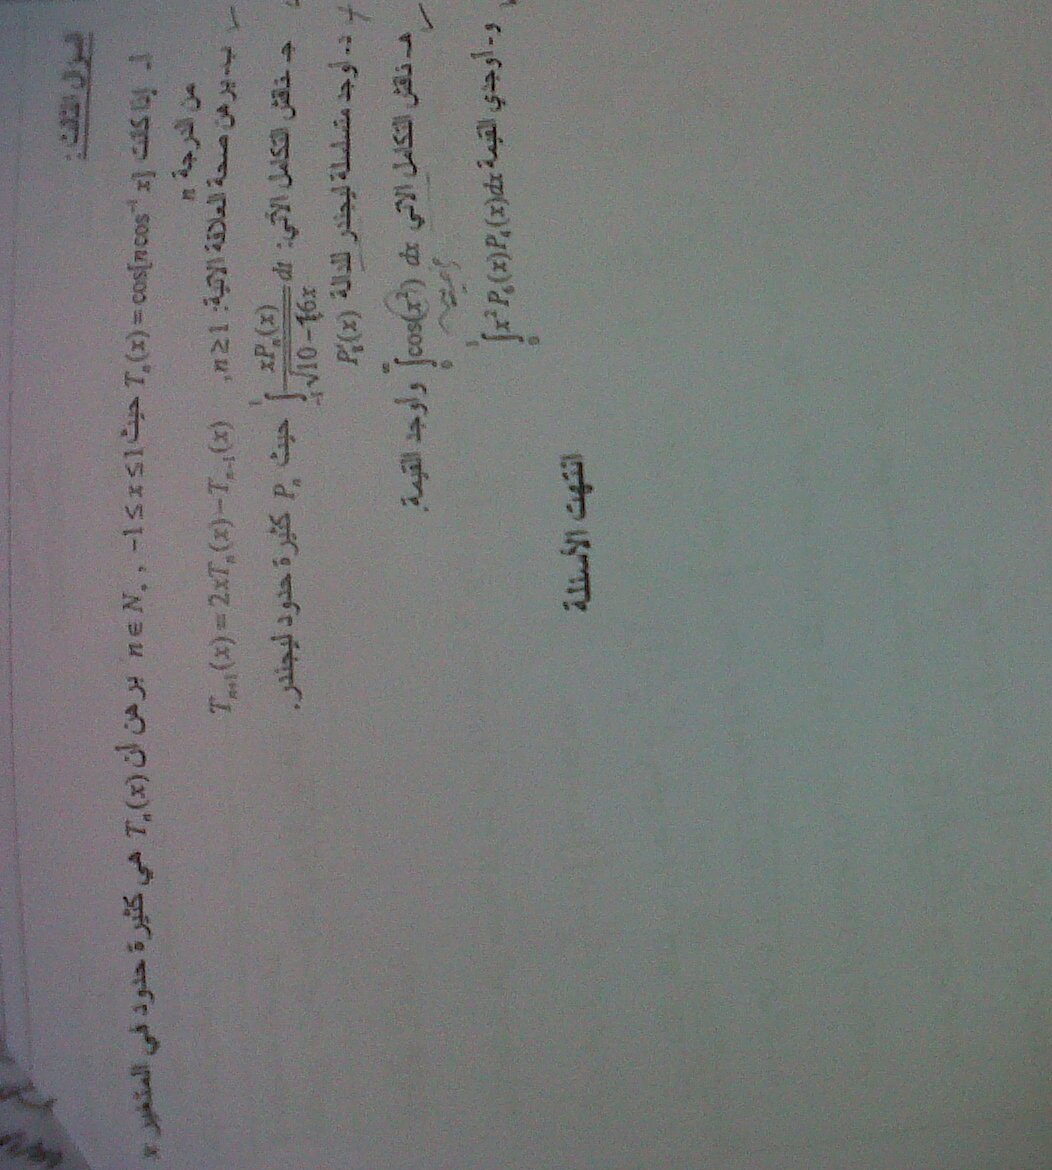 السؤال الثالث:
أ- إذا كانت T_n(x) = cos[n cos⁻¹ x] حيث -1 ≤ x ≤ 1 , n ∈ N برهن أن T_n(x) هي كثيرة حدود في المتغير x
من الدرجة n
ب- برهن صحة العلاقة الاتية: T_{n+1}(x) = 2xT_n(x) - T_{n-1}(x) , n ≥ 1
جـ- ناقش التكامل الآتي: ∫_{-1}^{1} xP_n(x)/√(10-6x) dx حيث P_n كثيرة حدود ليجندر.
د- أوجد متسلسلة ليجندر للدالة P'_8(x)
هـ- ناقش التكامل الآتي ∫_0^∞ cos(x²) dx و أوجد القيمة.
و- أوجدي القيمة ∫_0^1 x² P_6(x) P_4(x) dx
انتهت الأسئلة